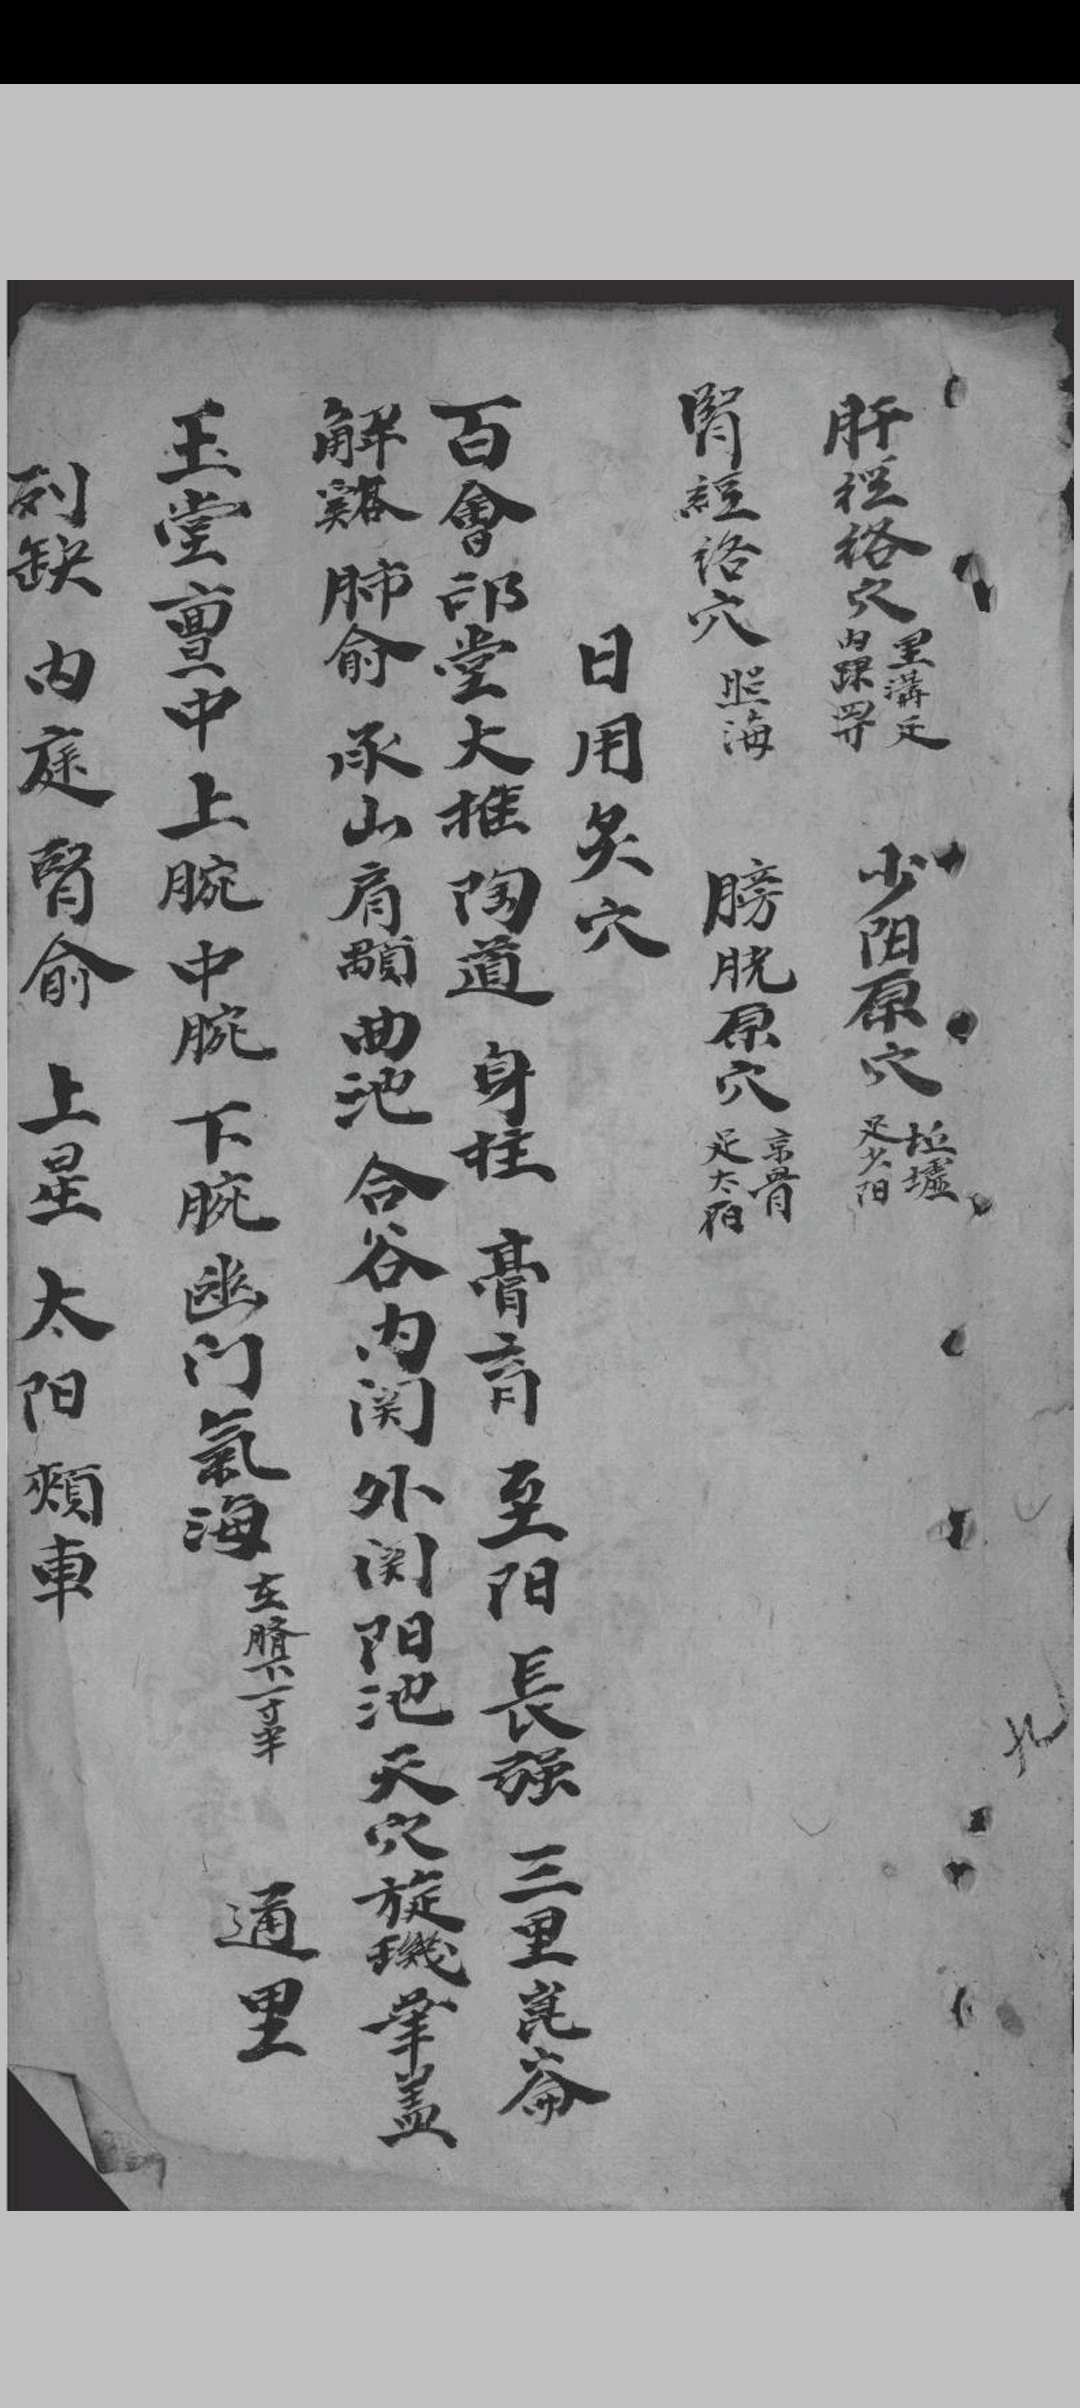 肝経络穴 里溝足内踝労 少阳原穴 坵墟足少阳
腎経络穴 照海 膀胱原穴 京骨足太阳
日用炙穴
百會印堂大椎陶道 身柱 膏肓 至阳 長强 三里崑崙
解谿 肺俞 承山肩顒曲池 合谷内関 外関阳池天穴旋璣華盖
玉堂亶中上腕中腕 下腕幽门氣海 在臍下一寸半 通里
列缺 内庭腎俞 上星太阳頬車